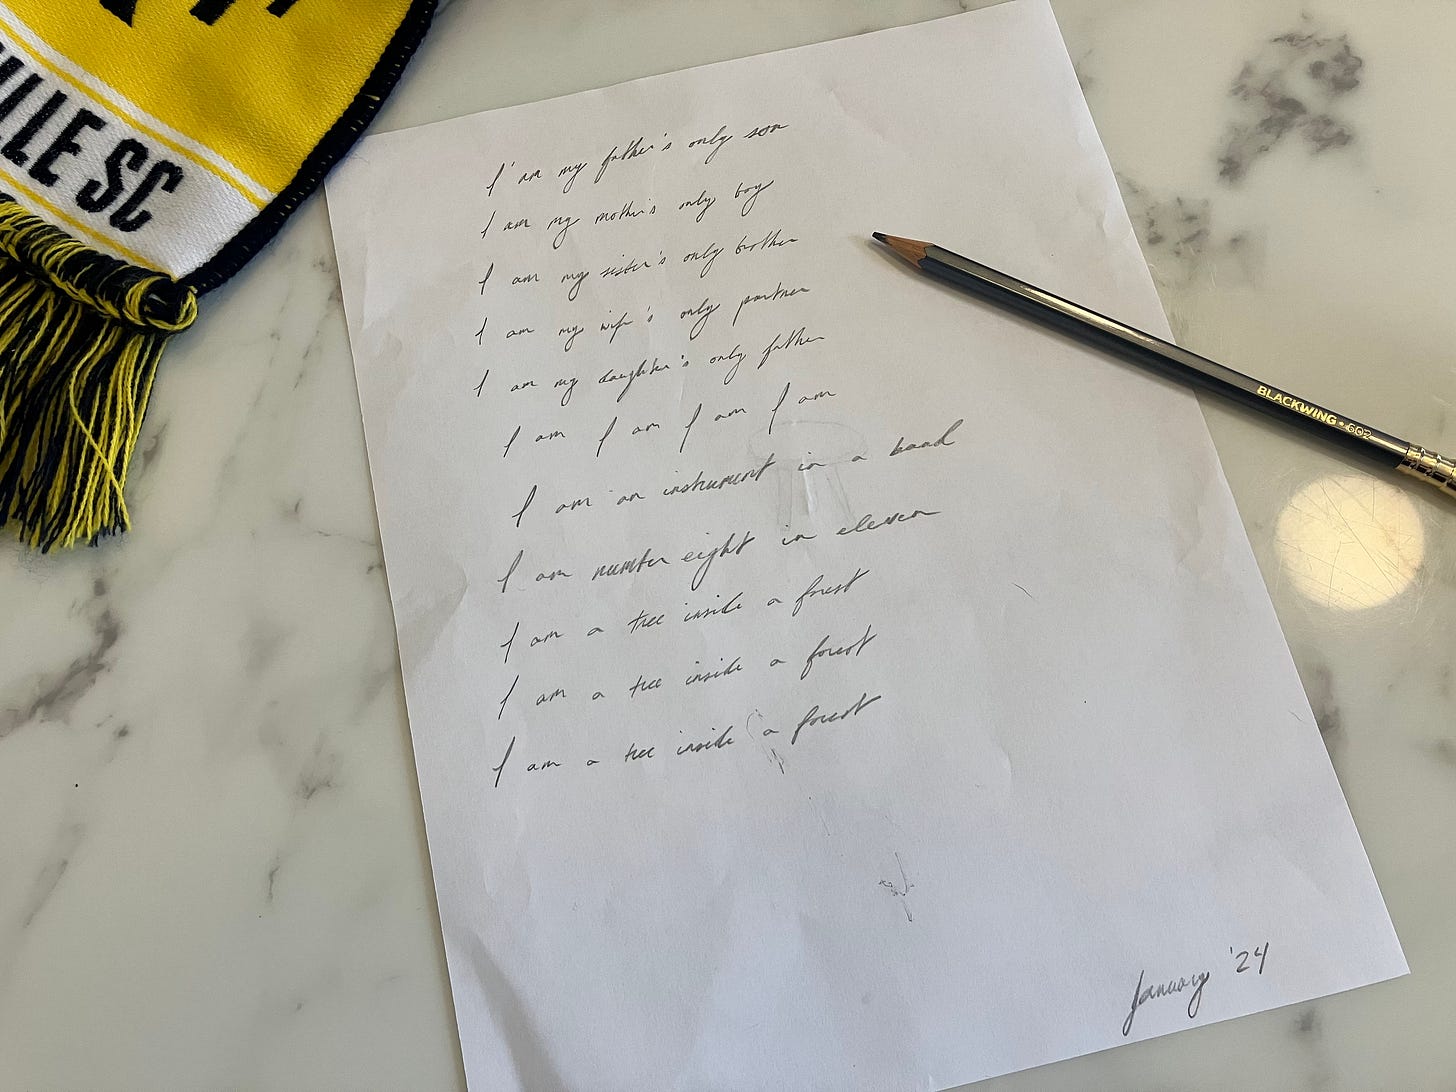 LLE SC
I am my father's only son
I am my mother's only boy
I am my sister's only brother
I am my wife's only partner
I am my daughter's only father
I am I am I am I am
I am an instrument in a band
I am number eight in eleven
I am a tree inside a forest
I am a tree inside a forest
I am a tree inside a forest
January '24
BLACKWING • 602